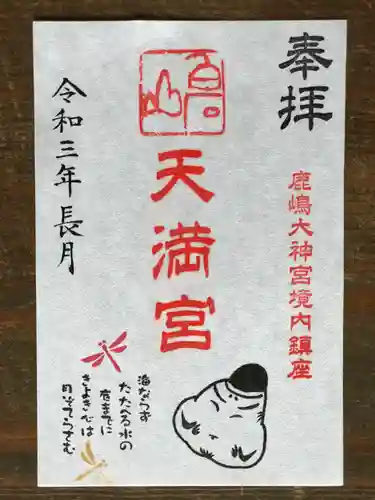 奉拝
鹿嶋大神宮境内鎮座
天満宮
海ならず
たたへる水の
底までに
きよき心は
月ぞてらさむ
令和三年長月